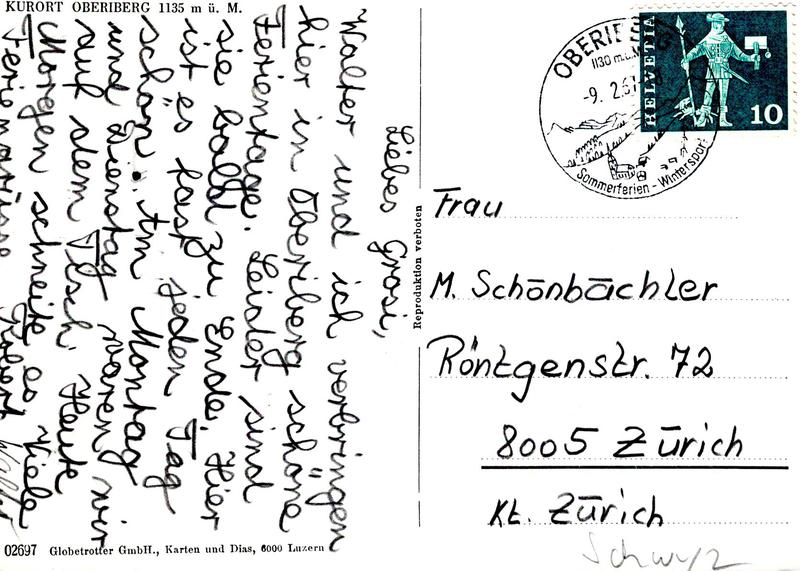 KURORT OBERIBERG 1135 m ü. M.
Liebes Grosi,
Walter und ich verbringen
hier in Oberiberg schöne
Ferientage. Leider sind
sie bald zu Ende. Hier
ist es fast jeden Tag
schön. Am Montag
und Dienstag waren wir
auf dem Heute
Morgen schneite es. Viele
02697 Globetrotter GmbH., Karten und Dias, 6000 Luzern
Reproduktion verboten
OBERIBERG
1130 m.ü.M.
-9. 2.67
Sommerferien - Wintersport
HELVETIA
10
Frau
M. Schönbächler
Röntgenstr. 72
8005 Zürich
Kt. Zürich
Schwyz